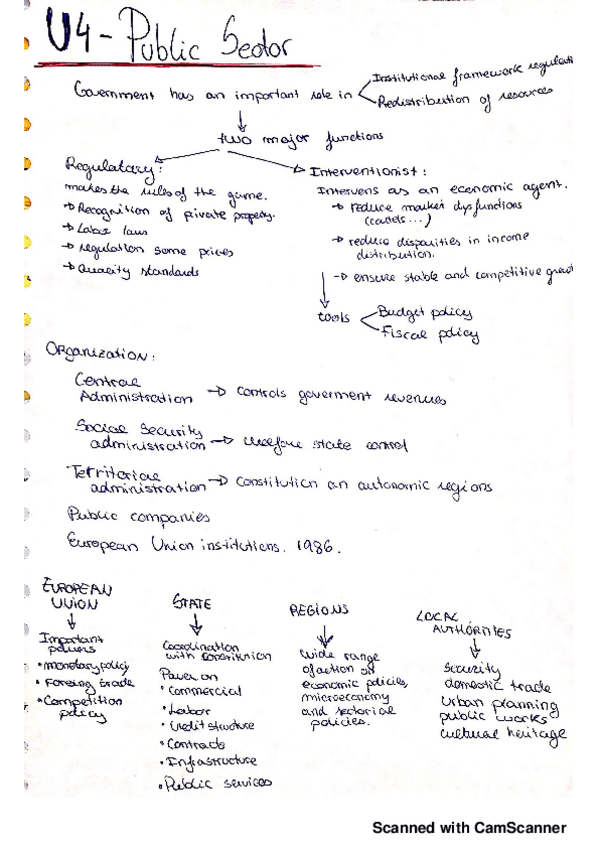 U4 - Public Sector
Government has an important role in
Institutional framework regulati
Redistribution of resources
two major functions
Regulatory:
makes the rules of the game.
→ Recognition of private property.
→ Labor laws
→ regulation some prices
→ Quality standards
Interventionist:
Intervens as an economic agent.
→ reduce market dysfunctions
(cartels...)
→ reduce disparities in income
distribution.
→ ensure stable and competitive
tools
Budget policy
Fiscal policy
Organization:
Central
Administration → controls goverment revenues
Social Security
administration → welfare state control
Territorial
administration → Constitution an autonomic regions
Public companies
European Union institutions. 1986.
EUROPEAN
UNION
Important
powers
• monetary policy
• Foreing trade
• Competition
policy
STATE
Coordination
with constitution
Power on
• Commercial
• Labor
• Credit structure
• Contracts
• Infrastructure
• Public services
REGIONS
wide range
of action on
economic policies,
microeconomy
and sectorial
policies.
LOCAL
AUTHORITIES
Security
domestic trade
Urban planning
public works
cultural heritage
Scanned with CamScanner